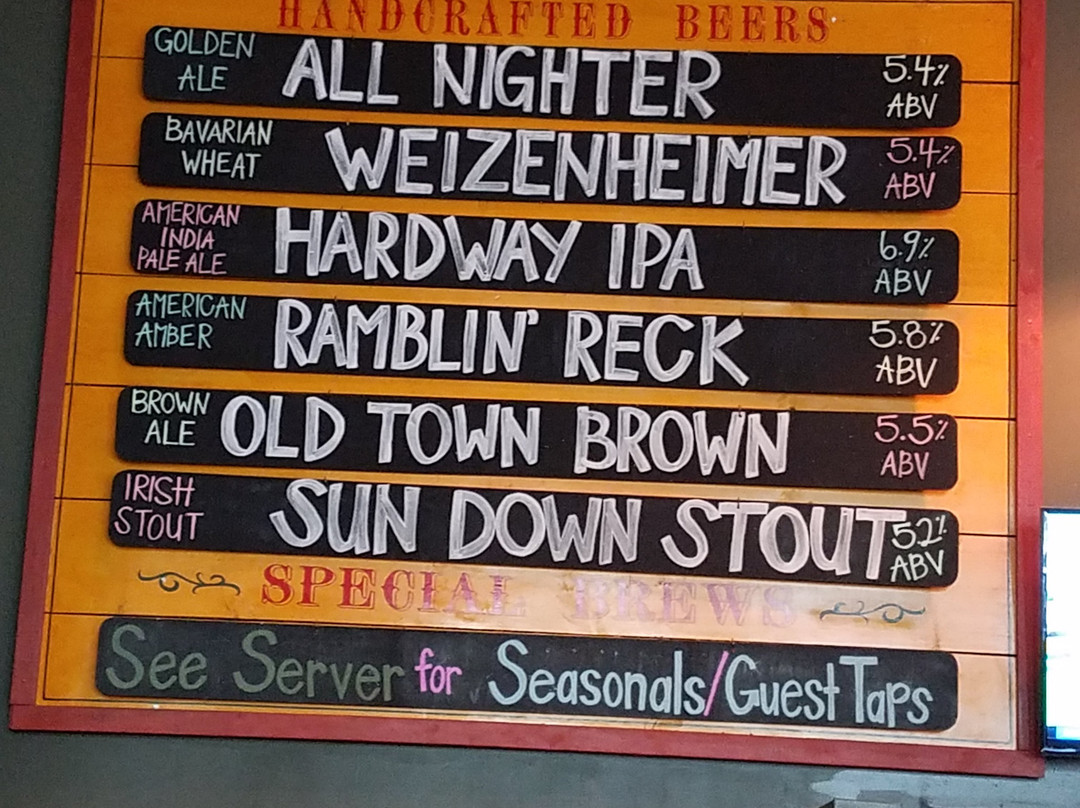 HANDCRAFTED BEERS
GOLDEN
ALE
ALL NIGHTER
5.4%
ABV
BAVARIAN
WHEAT
WEIZENHEIMER
5.4%
ABV
AMERICAN
INDIA
PALE ALE
HARDWAY IPA
6.9%
ABV
AMERICAN
AMBER
RAMBLIN' RECK
5.8%
ABV
BROWN
ALE
OLD TOWN BROWN
5.5%
ABV
IRISH
STOUT
SUN DOWN STOUT
5.2%
ABV
SPECIAL BREWS
See Server for Seasonals/Guest Taps